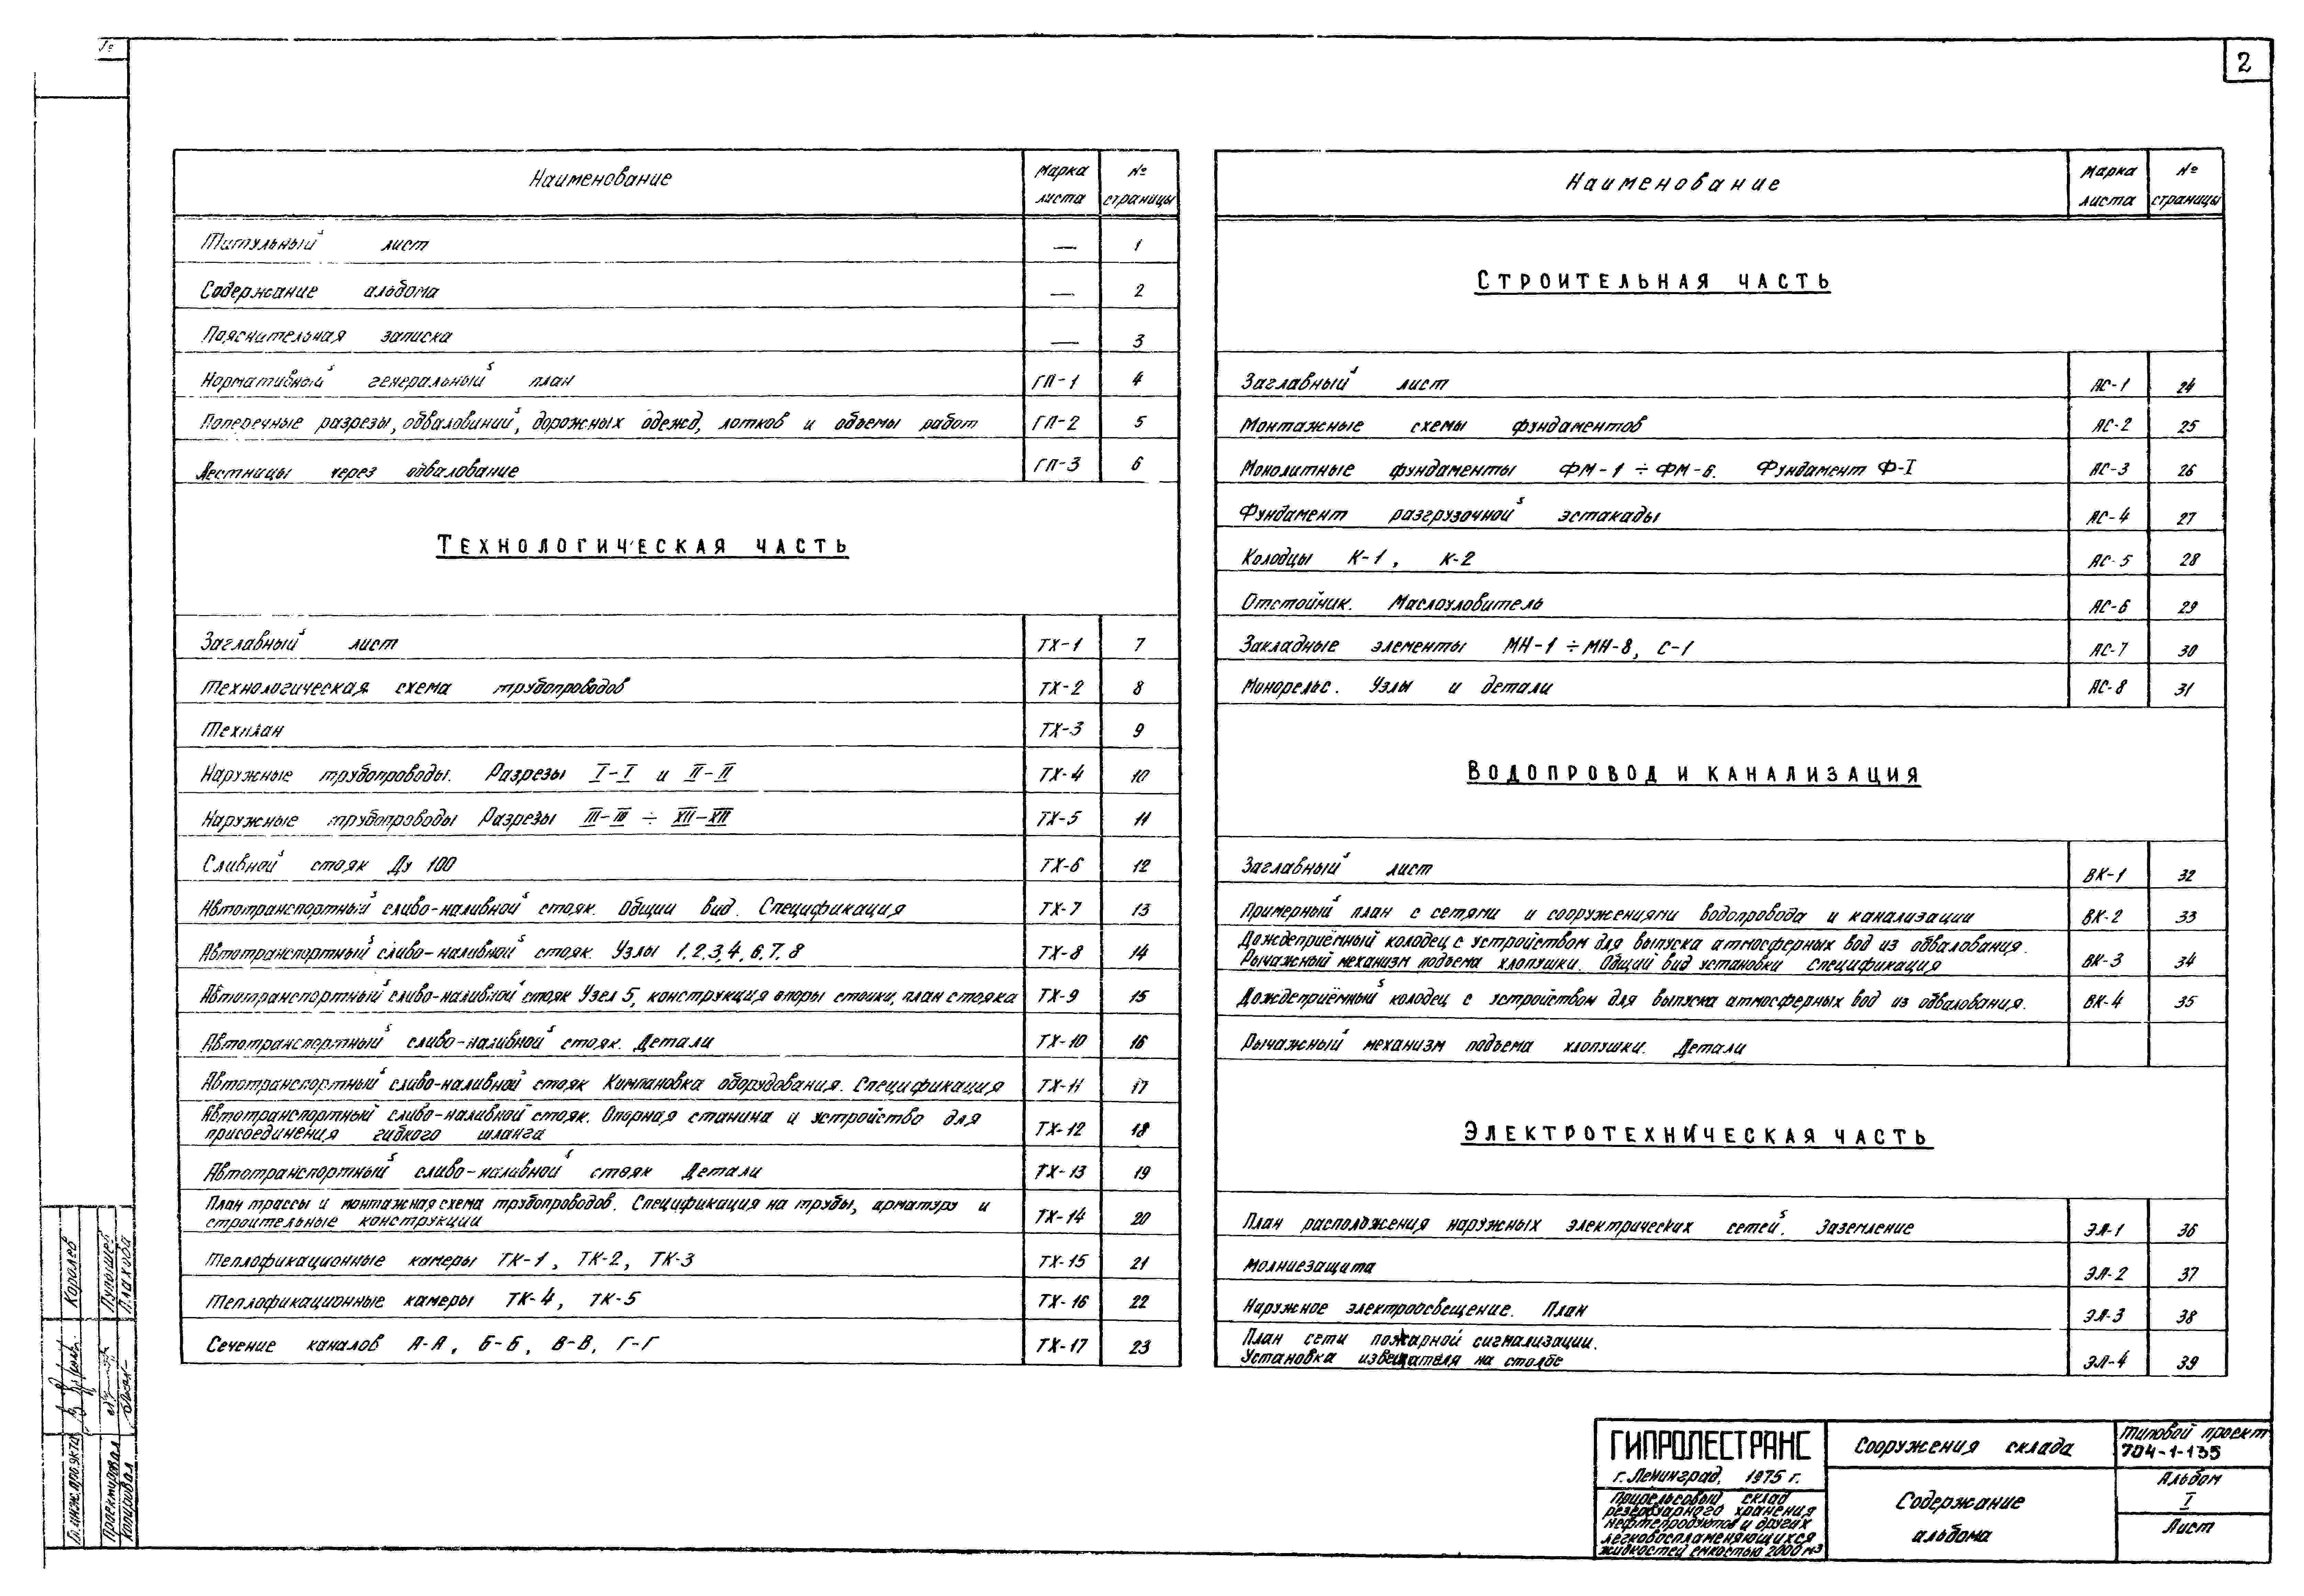 2
Наименование Марка листа № страницы
Титульный лист — 1
Содержание альбома — 2
Пояснительная записка — 3
Нормативный генеральный план ГП-1 4
Поперечные разрезы, обваловиний, дорожных одежд, лотков и объемы работ ГП-2 5
Лестницы через обвалование ГП-3 6
Технологическая часть
Заглавный лист ТХ-1 7
Технологическая схема трубопроводов ТХ-2 8
Техплан ТХ-3 9
Наружные трубопроводы. Разрезы I-I и II-II ТХ-4 10
Наружные трубопроводы Разрезы III-III ÷ XII-XII ТХ-5 11
Сливной стояк Ду 100 ТХ-6 12
Автотранспортный сливо-наливной стояк. Общий вид. Спецификация ТХ-7 13
Автотранспортный сливо-наливной стояк. Узлы 1,2,3,4,6,7,8 ТХ-8 14
Автотранспортный сливо-наливной стояк Узел 5, конструкция опоры стойки, план стояка ТХ-9 15
Автотранспортный сливо-наливной стояк. Детали ТХ-10 16
Автотранспортный сливо-наливной стояк Компановка оборудования. Спецификация ТХ-11 17
Автотранспортный сливо-наливной стояк. Опорная станина и устройство для
присоединения гибкого шланга ТХ-12 18
Автотранспортный сливо-наливной стояк Детали ТХ-13 19
План трассы и монтажная схема трубопроводов. Спецификация на трубы, арматуру и
строительные конструкции ТХ-14 20
Теплофикационные камеры ТК-1, ТК-2, ТК-3 ТХ-15 21
Теплофикационные камеры ТК-4, ТК-5 ТХ-16 22
Сечение каналов А-А, Б-Б, В-В, Г-Г ТХ-17 23
Наименование Марка листа № страницы
Строительная часть
Заглавный лист АС-1 24
Монтажные схемы фундаментов АС-2 25
Монолитные фундаменты ФМ-1 ÷ ФМ-6. Фундамент Ф-I АС-3 26
Фундамент разгрузочной эстакады АС-4 27
Колодцы К-1, К-2 АС-5 28
Отстойник. Маслоуловитель АС-6 29
Закладные элементы МН-1 ÷ МН-8, С-1 АС-7 30
Монорельс. Узлы и детали АС-8 31
Водопровод и канализация
Заглавный лист ВК-1 32
Примерный план с сетями и сооружениями водопровода и канализации ВК-2 33
Дождеприёмный колодец с устройством для выпуска атмосферных вод из обвалования.
Рычажный механизм подъема хлопушки. Общий вид установки Спецификация ВК-3 34
Дождеприёмный колодец с устройством для выпуска атмосферных вод из обвалования. ВК-4 35
Рычажный механизм подъема хлопушки. Детали
Электротехническая часть
План расположения наружных электрических сетей. Заземление ЭЛ-1 36
Молниезащита ЭЛ-2 37
Наружное электроосвещение. План ЭЛ-3 38
План сети пожарной сигнализации.
Установка извещателя на столбе ЭЛ-4 39
ГИПРОЛЕСТРАНС
г. Ленинград, 1975 г.
Прирельсовый склад
резервуарного хранения
нефтепродуктов и других
легковоспламеняющихся
жидкостей емкостью 2000 м3
Сооружения склада
Содержание
альбома
Типовой проект
704-1-135
Альбом
I
Лист
Гл. инж. проекта Королев
Проектировал
Копировал Плахова